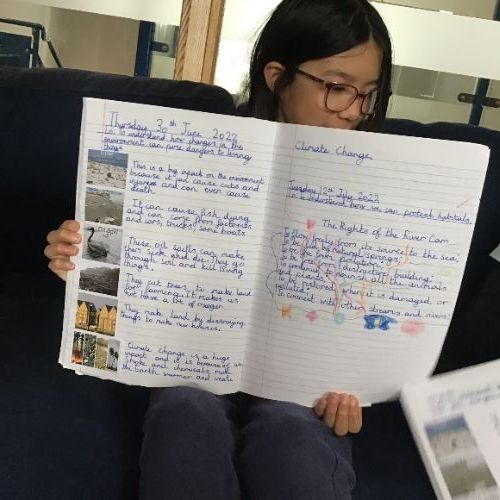 Thursday 30th June 2022
L.I. to understand how changes in the
environment can pose dangers to living
things
This is a big impact on the environment
because it can cause cuts and
injures and can even cause
death.
It can cause fish dying
and can come from factories
and cars, trucks, some boats
These oil spills can make
them sick and die. They go
through soil and kill living
things.
They cut trees to make land
for farming. It makes us
not have a lot of oxygen
They make land by destroying
things to make new houses.
Climate Change is a huge
impact and it is because of
smoke and chemicals make
the Earth warmer and
Climate Change
Tuesday 12th July 2022
L.I. to understand how we can protect habitats
The Rights of the River Cam
To flow freely from its source to the sea.
To be fed by natural springs.
To be free from pollution
To be free from destructive building
To continue to nourish all the animals
and plants
To be restored when it is damaged or
polluted
To connect with other streams and rivers